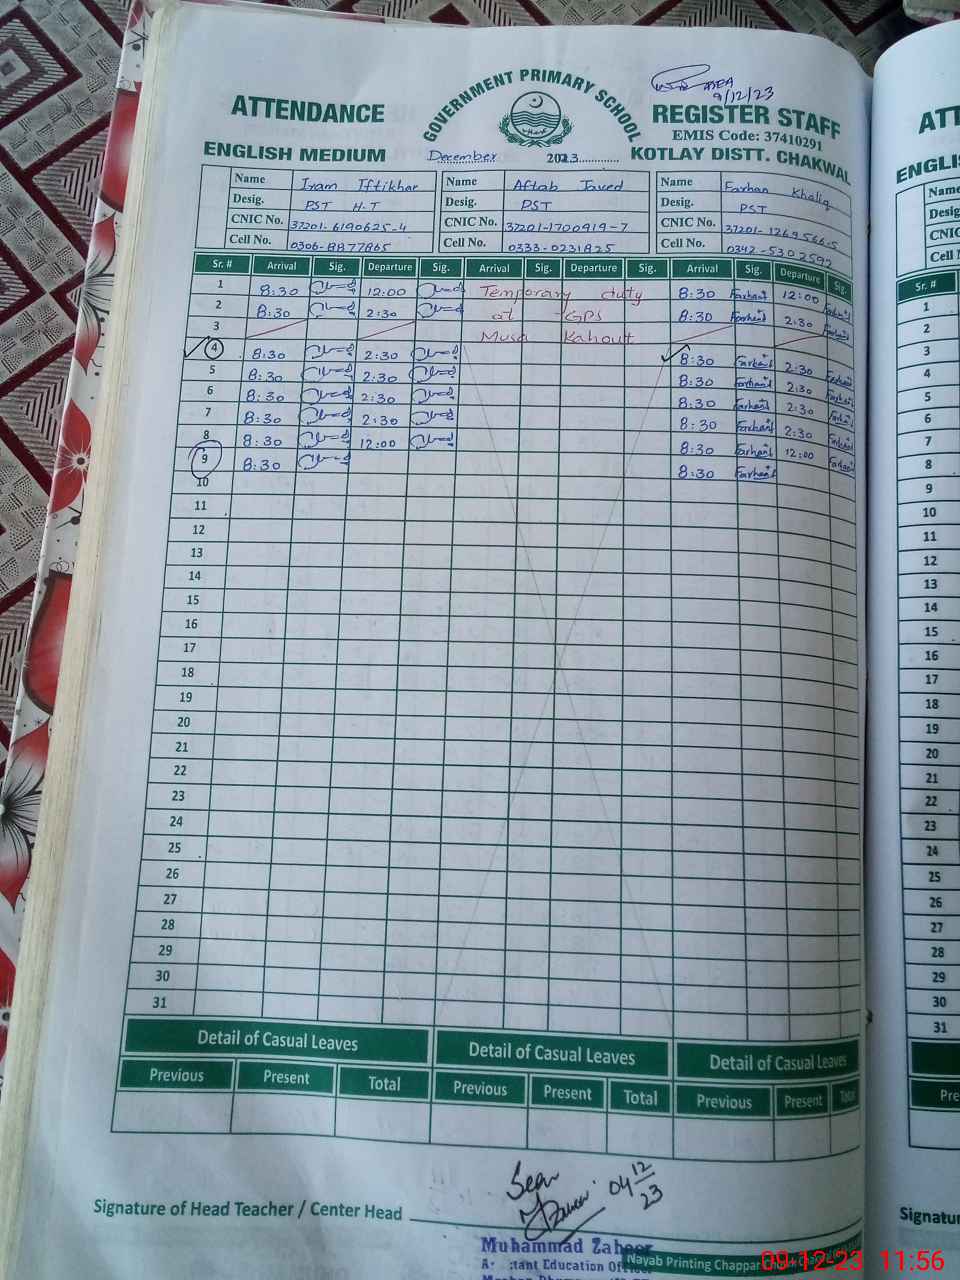 AEA
9/12/23
GOVERNMENT PRIMARY SCHOOL
ATTENDANCE
REGISTER STAFF
EMIS Code: 37410291
ENGLISH MEDIUM
December 2023
KOTLAY DISTT. CHAKWAL
Name Iram Iftikhar Name Aftab Javed Name Farhan Khaliq
Desig. PST H-T Desig. PST Desig. PST
CNIC No. 37201-6190625-4 CNIC No. 37201-1700919-7 CNIC No. 37201-1269566-5
Cell No. 0306-8877865 Cell No. 0333-0231825 Cell No. 0342-5302592
Sr. # Arrival Sig. Departure Sig. Arrival Sig. Departure Sig. Arrival Sig. Departure Sig.
1 8:30 12:00 Temporary duty 8:30 Farhan 12:00 Farhan
2 8:30 2:30 at GPS 8:30 Farhan 2:30 Farhan
3 Musa Kahout
4 8:30 2:30 8:30 Farhan 2:30 Farhan
5 8:30 2:30 8:30 Farhan 2:30 Farhan
6 8:30 2:30 8:30 Farhan 2:30 Farhan
7 8:30 2:30 8:30 Farhan 2:30 Farhan
8 8:30 12:00 8:30 Farhan 12:00 Farhan
9 8:30 8:30 Farhan
10
11
12
13
14
15
16
17
18
19
20
21
22
23
24
25
26
27
28
29
30
31
Detail of Casual Leaves Detail of Casual Leaves Detail of Casual Leaves
Previous Present Total Previous Present Total Previous Present Total
Seen
04 12/23
Signature of Head Teacher / Center Head
Muhammad Zaheer
Education Officer
Nayab Printing Chappar
09-12-23 11:56
ATT
ENGLIS
Name
Desig
CNIC
Cell N
Sr. #
1
2
3
4
5
6
7
8
9
10
11
12
13
14
15
16
17
18
19
20
21
22
23
24
25
26
27
28
29
30
31
Pre
Signatu